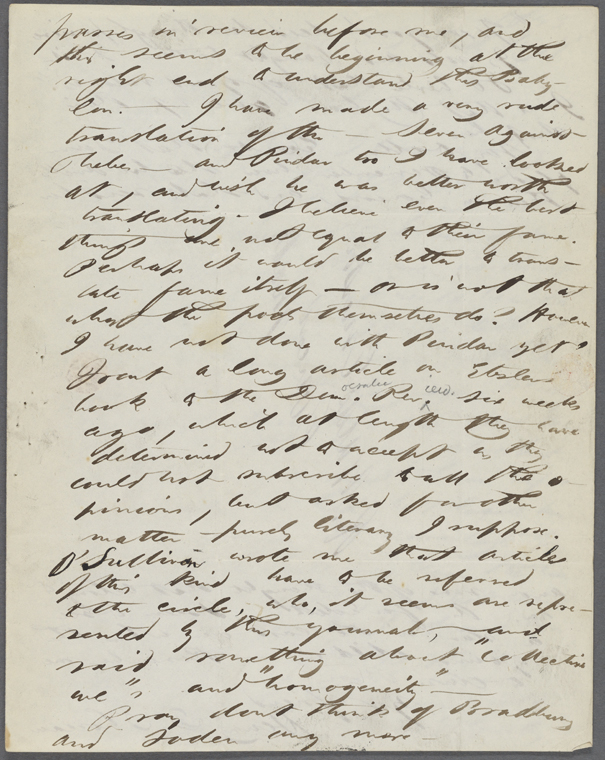 passes in review before me, and
this seems to be beginning at the
right end to understand this Baby-
lon. — I have made a very rude
translation of the — Seven Against
Thebes — and Pindar too I have looked
at, and wish he was better worth
translating. I believe even the best
things are not equal to their fame.
Perhaps it would be better to trans-
late fame itself — or is not that
what the poets themselves do? However
I have not done with Pindar yet.
I sent a long article on Etzler's
book to the Dem. ocratic Rev. iew. six weeks
ago, which at length they have
determined not to accept as they
could not subscribe to all the o-
pinions, but asked for other
matter — purely literary I suppose.
O'Sullivan wrote me that articles
of this kind have to be referred
to the circle, who, it seems are repre-
sented by this journal, and
said something about "collective
we" s and "homogeneity" —
Pray dont think of Bradbury
and Soden any more —